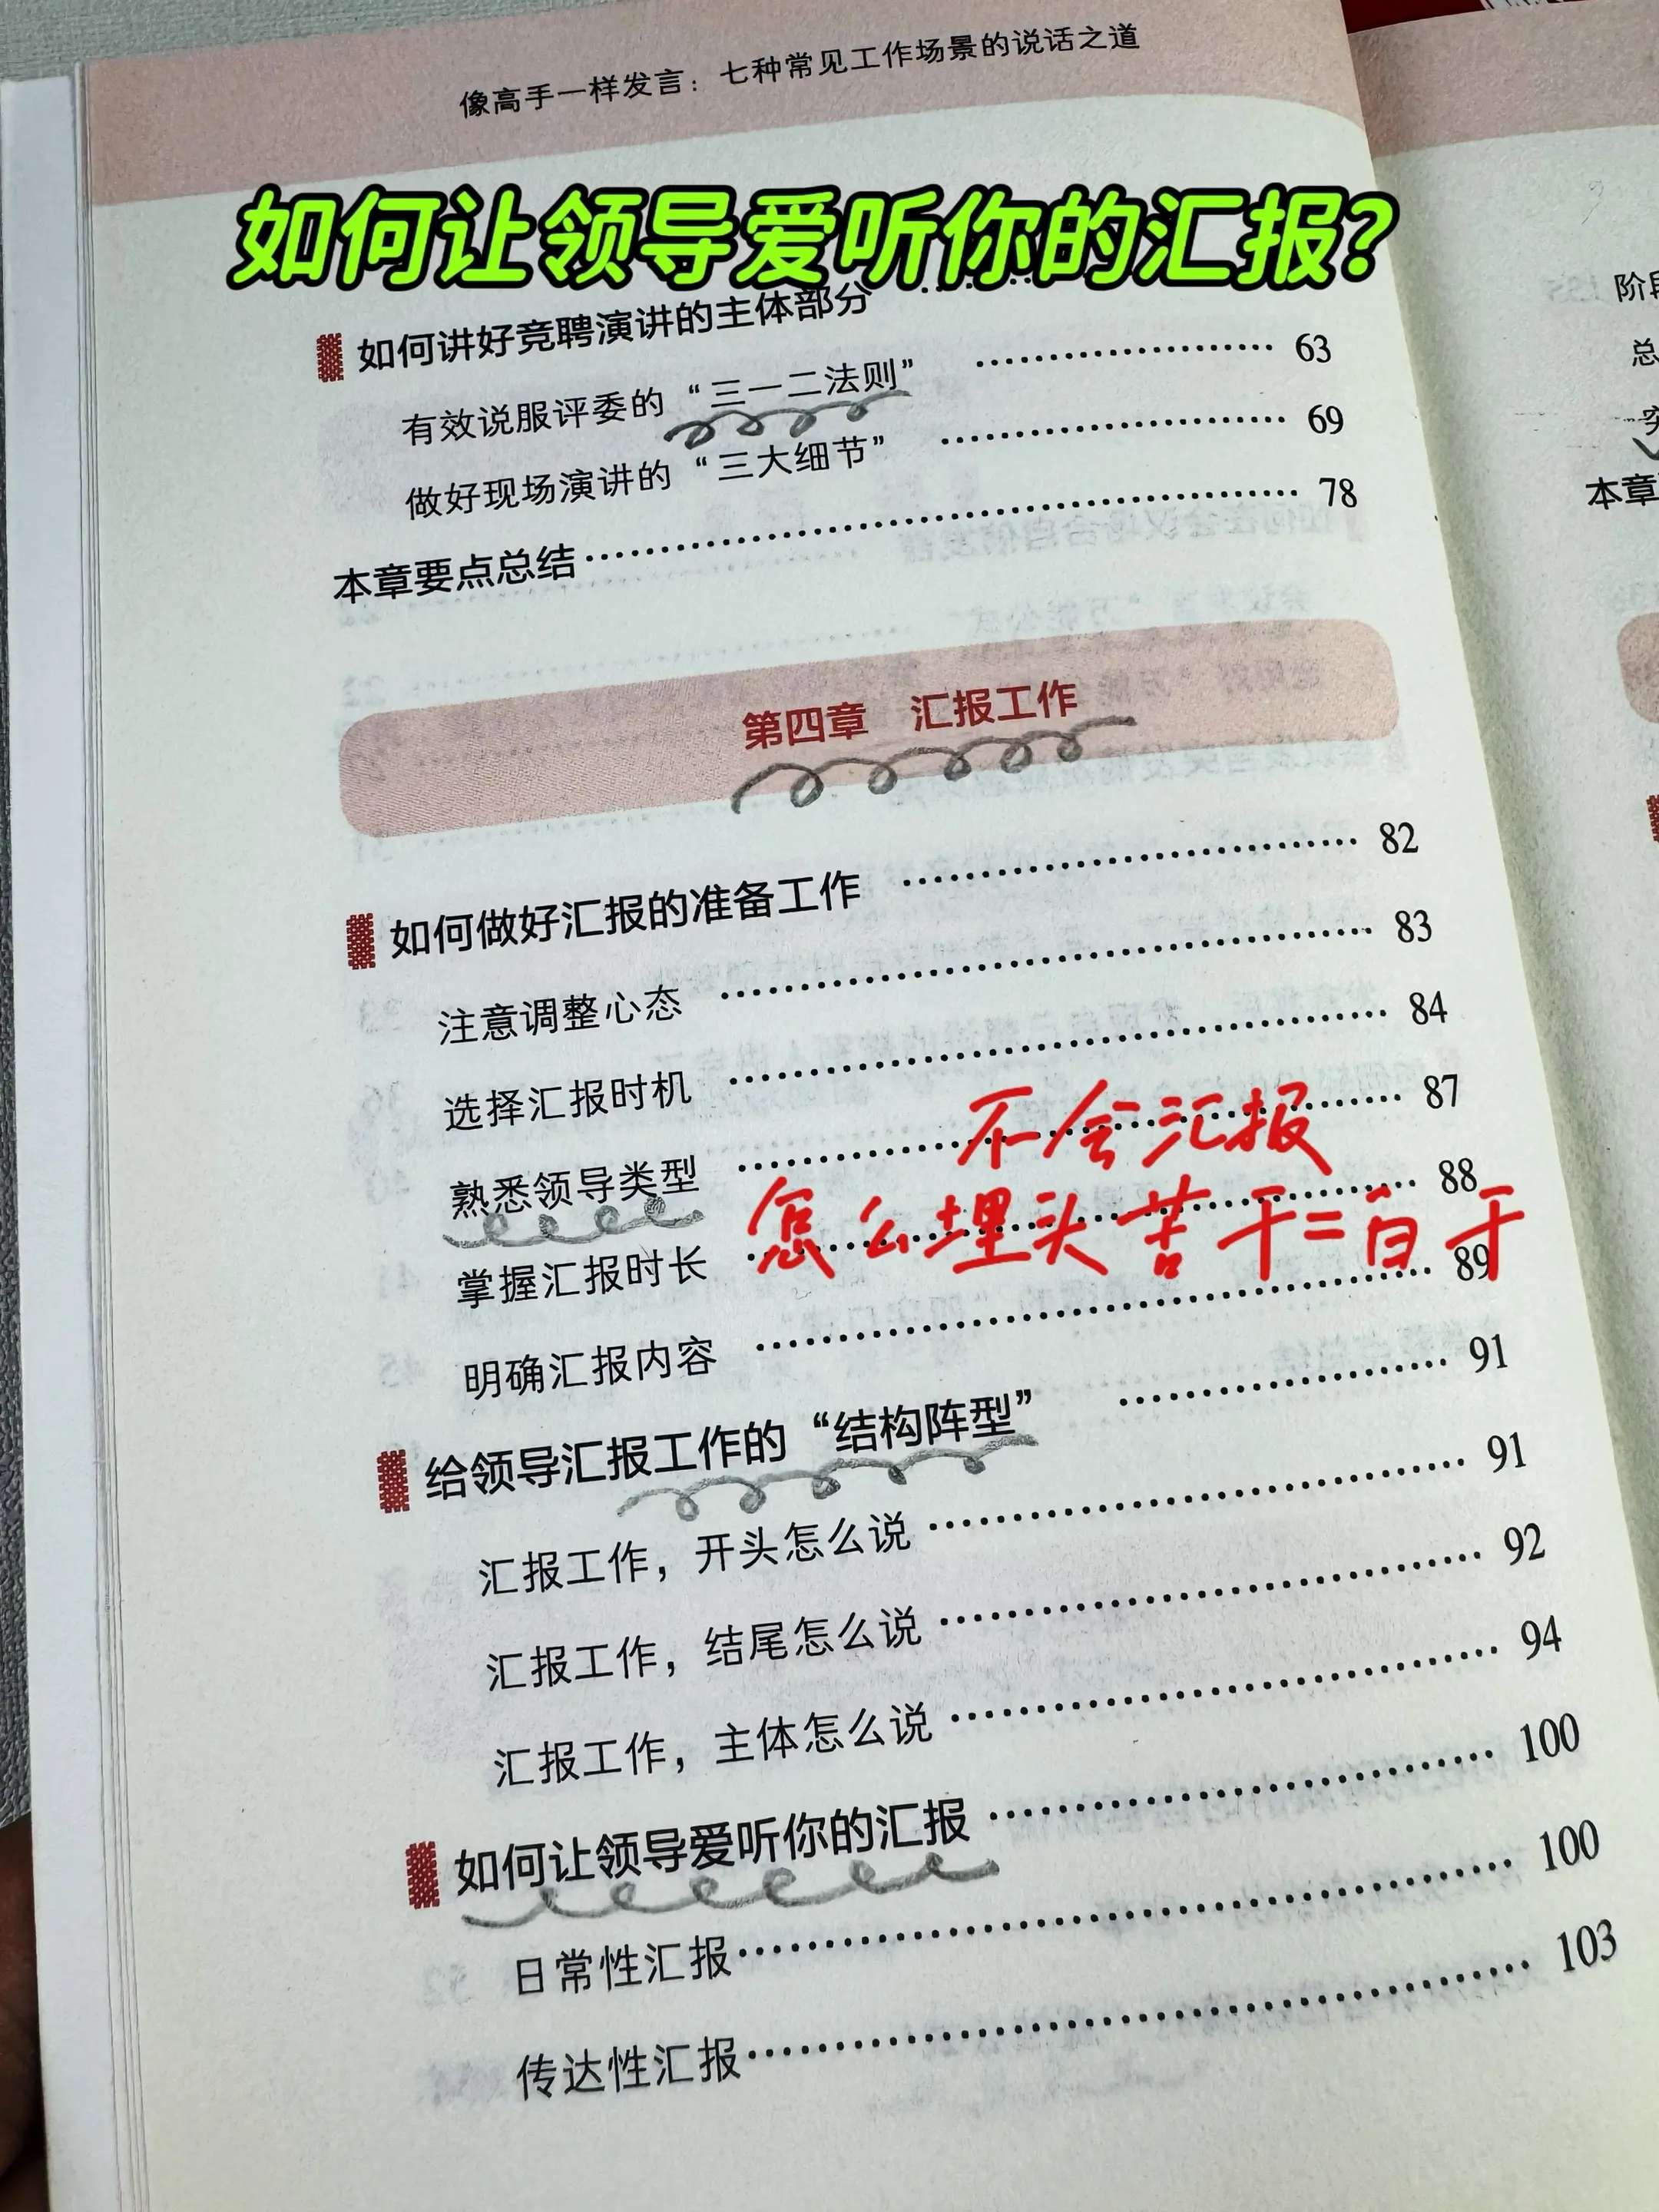 像高手一样发言：七种常见工作场景的说话之道
如何让领导爱听你的汇报?
如何讲好竞聘演讲的主体部分
有效说服评委的“三一二法则” 63
做好现场演讲的“三大细节” 69
本章要点总结 78
第四章 汇报工作
如何做好汇报的准备工作 82
注意调整心态 83
选择汇报时机 84
熟悉领导类型 87
不会汇报
掌握汇报时长 88
怎么埋头苦干=白干
明确汇报内容 89
给领导汇报工作的“结构阵型” 91
汇报工作，开头怎么说 91
汇报工作，结尾怎么说 92
汇报工作，主体怎么说 94
如何让领导爱听你的汇报 100
日常性汇报 100
传达性汇报 103
阶段
总
本章